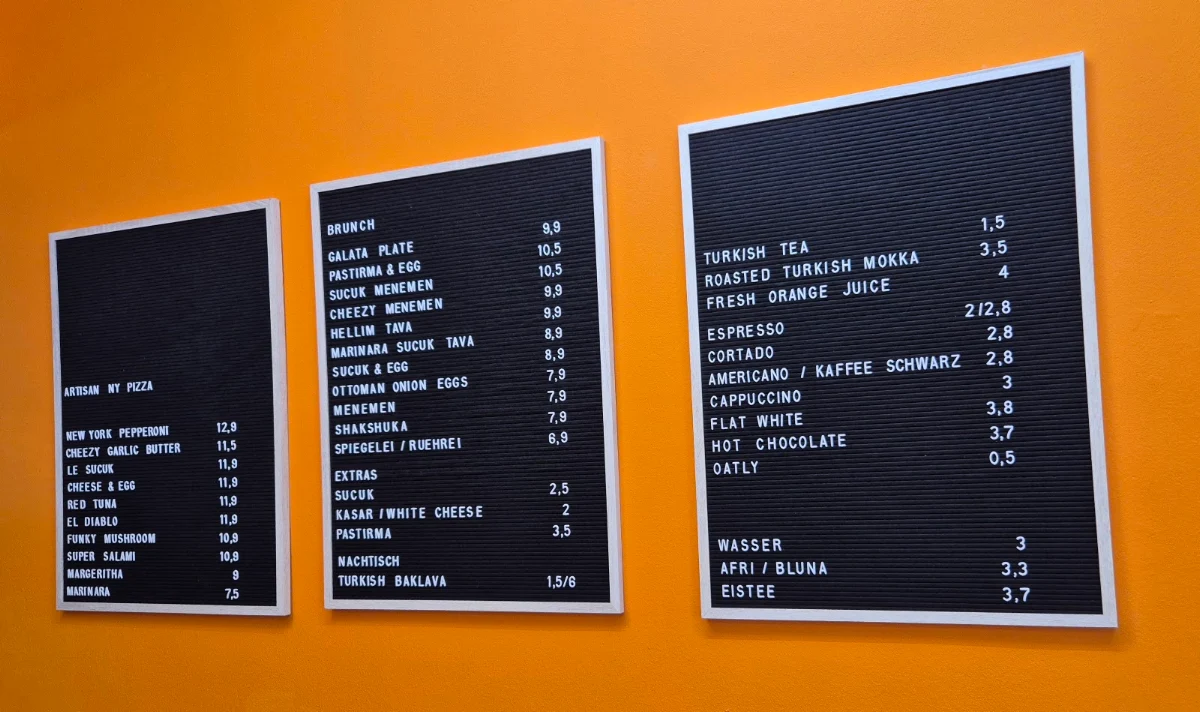 ARTISAN NY PIZZA
NEW YORK PEPPERONI 12,9
CHEEZY GARLIC BUTTER 11,5
LE SUCUK 11,9
CHEESE & EGG 11,9
RED TUNA 11,9
EL DIABLO 11,9
FUNKY MUSHROOM 10,9
SUPER SALAMI 10,9
MARGERITHA 9
MARINARA 7,5
BRUNCH
GALATA PLATE 9,9
PASTIRMA & EGG 10,5
SUCUK MENEMEN 10,5
CHEEZY MENEMEN 9,9
HELLIM TAVA 9,9
MARINARA SUCUK TAVA 8,9
SUCUK & EGG 8,9
OTTOMAN ONION EGGS 7,9
MENEMEN 7,9
SHAKSHUKA 7,9
SPIEGELEI / RUEHREI 6,9
EXTRAS
SUCUK 2,5
KASAR / WHITE CHEESE 2
PASTIRMA 3,5
NACHTISCH
TURKISH BAKLAVA 1,5/6
TURKISH TEA 1,5
ROASTED TURKISH MOKKA 3,5
FRESH ORANGE JUICE 4
ESPRESSO 2/2,8
CORTADO 2,8
AMERICANO / KAFFEE SCHWARZ 2,8
CAPPUCCINO 3
FLAT WHITE 3,8
HOT CHOCOLATE 3,7
OATLY 0,5
WASSER 3
AFRI / BLUNA 3,3
EISTEE 3,7